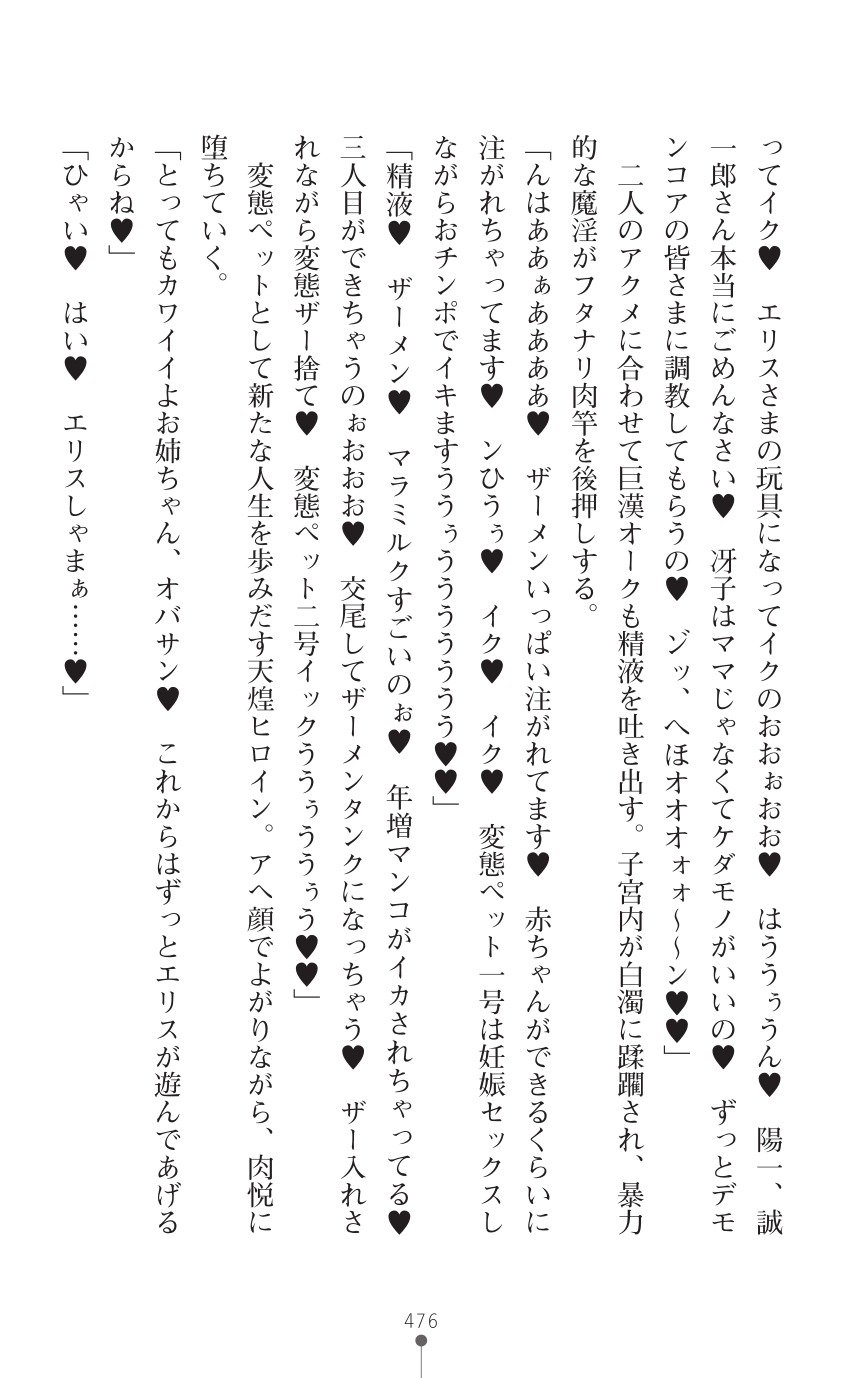 ってイク♥　エリスさまの玩具になってイクのおおぉおお♥　はううぅうん♥　陽一、誠
一郎さん本当にごめんなさい♥　冴子はママじゃなくてケダモノがいいの♥　ずっとデモ
ンコアの皆さまに調教してもらうの♥　ゾッ、へほオオオォォ～～ン♥♥」
　二人のアクメに合わせて巨漢オークも精液を吐き出す。子宮内が白濁に蹂躙され、暴力
的な魔淫がフタナリ肉竿を後押しする。
「んはああぁああああ♥　ザーメンいっぱい注がれてます♥　赤ちゃんができるくらいに
注がれちゃってます♥　ンひうぅ♥　イク♥　イク♥　変態ペット一号は妊娠セックスし
ながらおチンポでイキますううぅうううううう♥♥」
「精液♥　ザーメン♥　マラミルクすごいのぉ♥　年増マンコがイカされちゃってる♥
三人目ができちゃうのぉおおお♥　交尾してザーメンタンクになっちゃう♥　ザー入れさ
れながら変態ザー捨て♥　変態ペット二号イックううぅううぅう♥♥」
　変態ペットとして新たな人生を歩みだす天煌ヒロイン。アヘ顔でよがりながら、肉悦に
堕ちていく。
「とってもカワイイよお姉ちゃん、オバサン♥　これからはずっとエリスが遊んであげる
からね♥」
「ひゃい♥　はい♥　エリスしゃまぁ……♥」
476